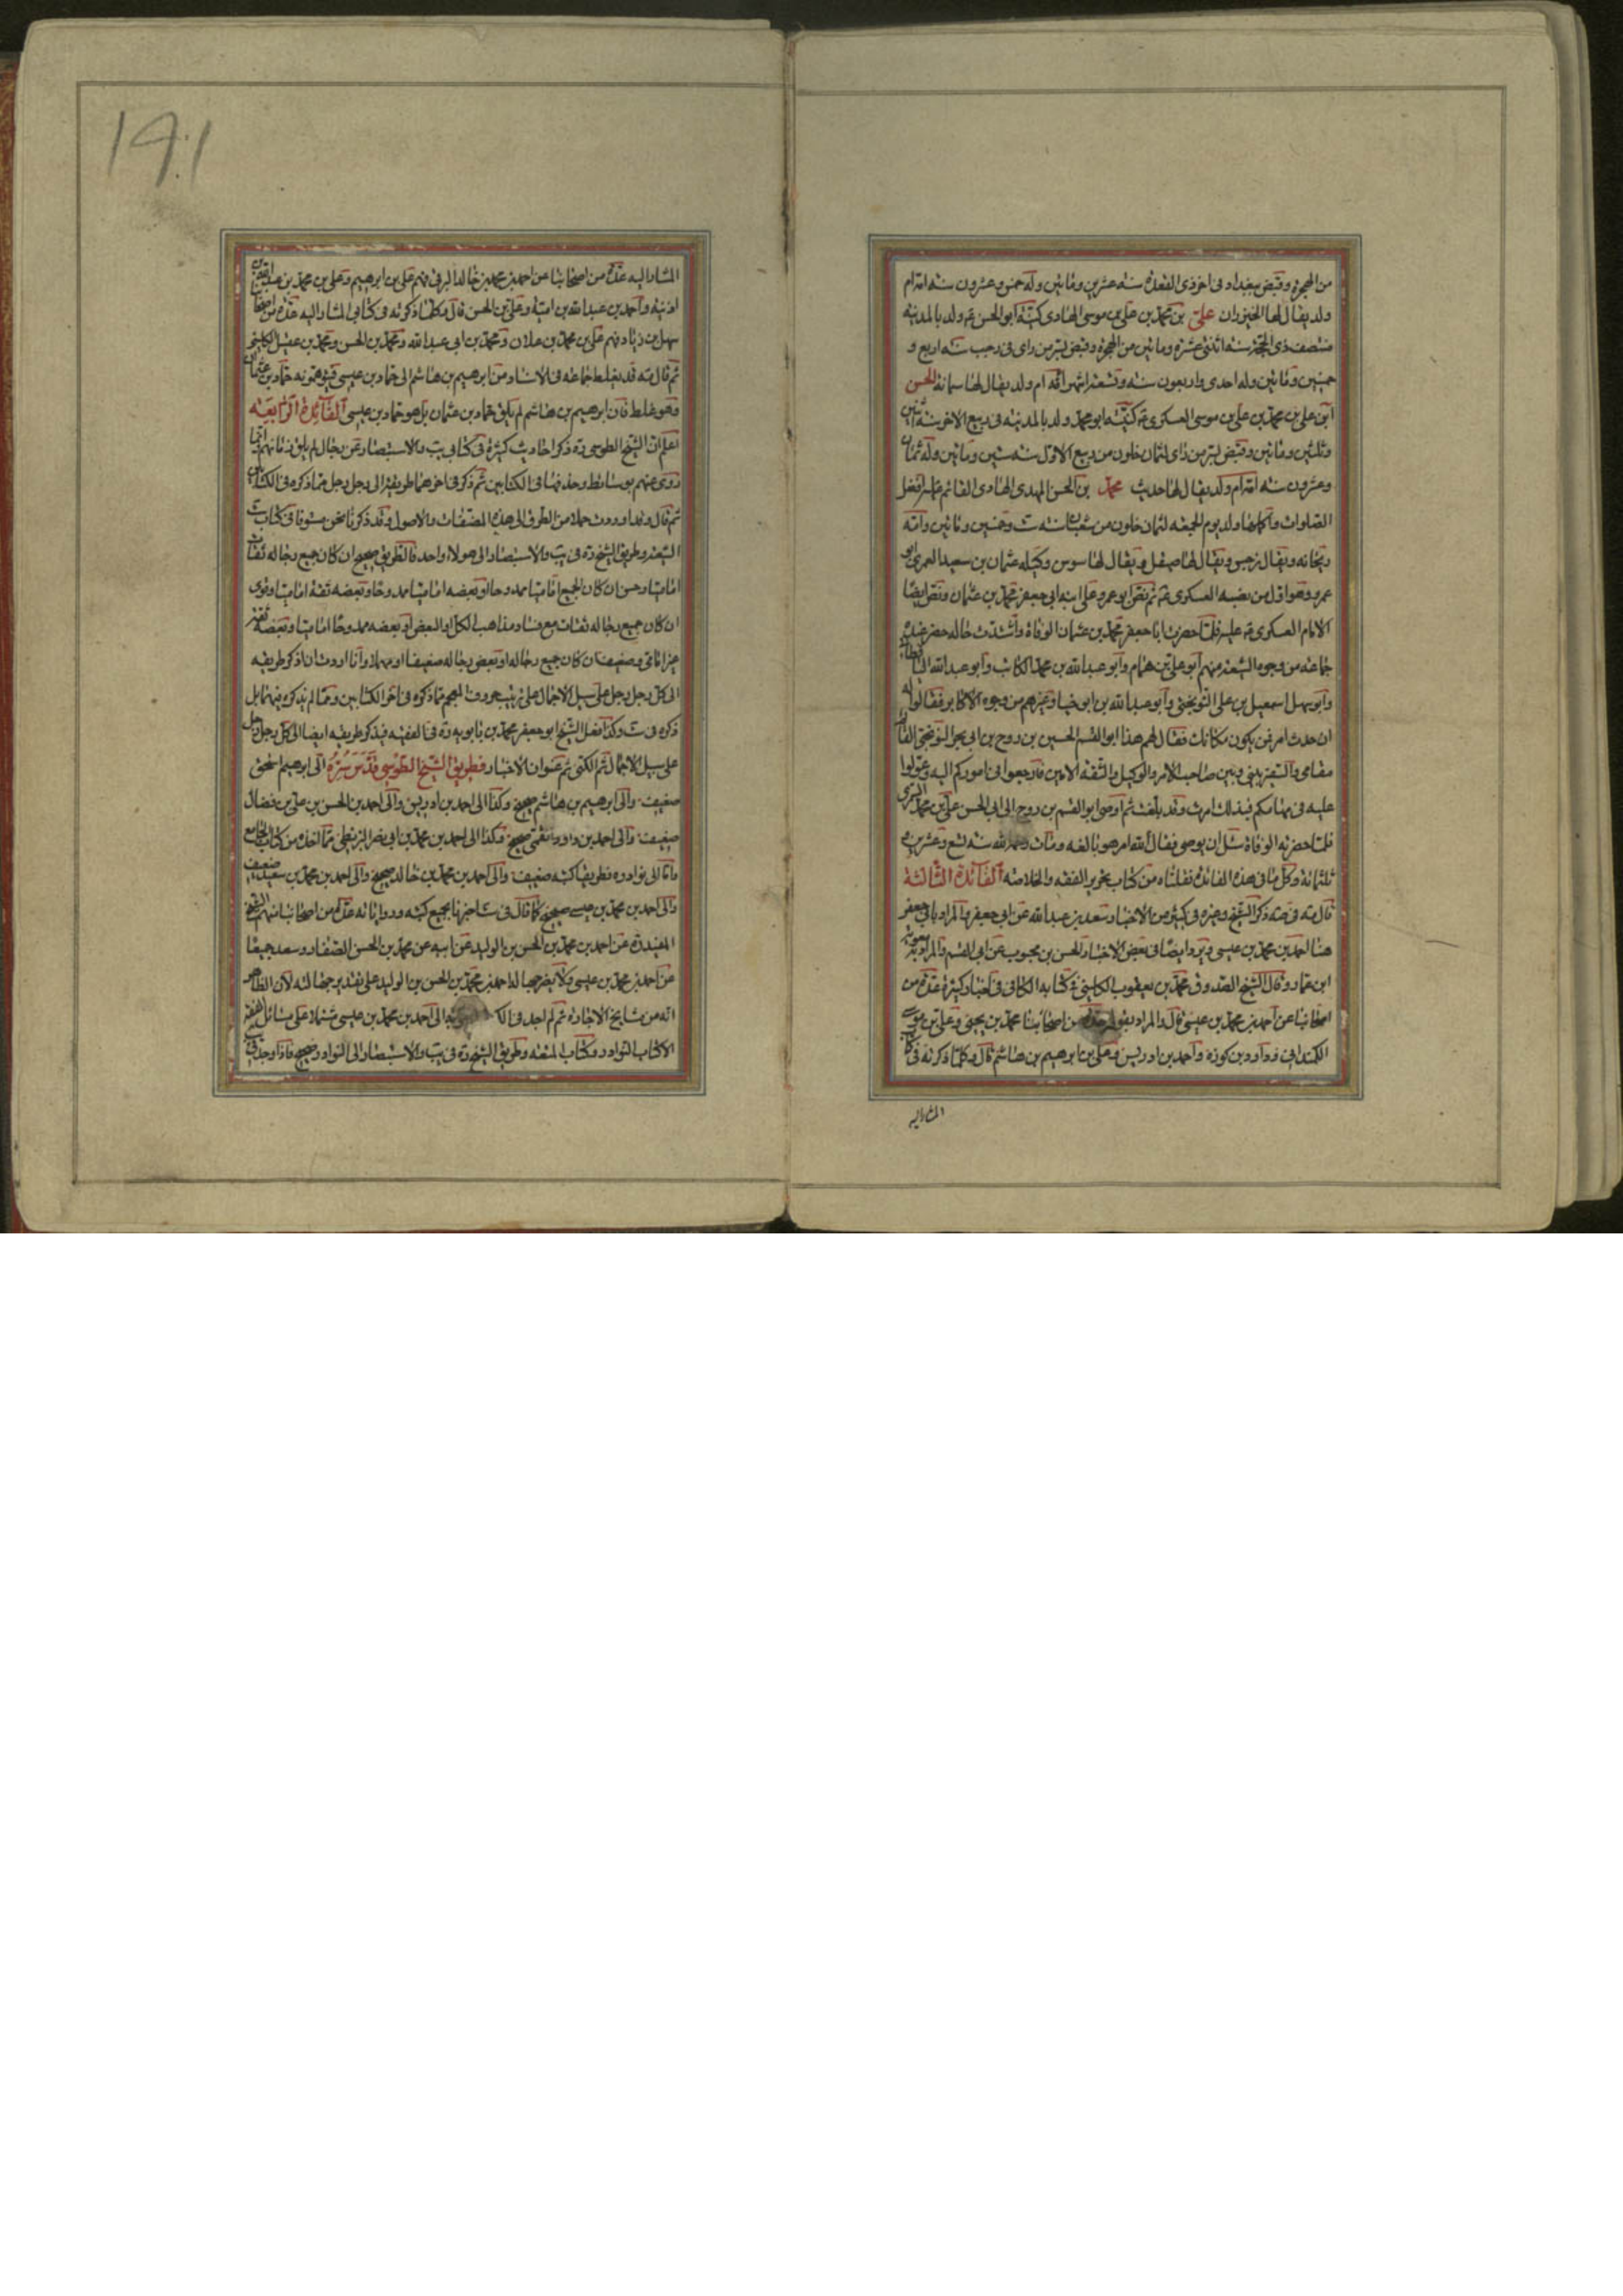 من الهجرة وقبض ببغداد في اخر ذي القعدة سنة عشرين ومائتين وله خمس وعشرون سنة امه ام
ولد يقال لها الخيزران علي بن محمد بن علي بن موسى الهادي كنيته ابو الحسن ع ولد بالمدينة
منتصف ذي الحجة سنة اثنتي عشرة ومائتين من الهجرة وقبض بسر من راى في رجب سنة اربع و
خمسين ومائتين وله احدى واربعون سنة وتسعة اشهر امه ام ولد يقال لها سمانة الحسن
ابن علي بن محمد بن علي بن موسى العسكري ع كنيته ابو محمد ولد بالمدينة في ربيع الاخر سنة اثنين
وثلثين ومائتين وقبض بسر من راى لثمان خلون من ربيع الاول سنة ستين ومائتين وله ثمان
وعشرون سنة امه ام ولد يقال لها حديث محمد بن الحسن المهدي الهادي القائم عليه افضل
الصلوات واكملها ولد يوم الجمعة لثمان خلون من شعبان سنة ست وخمسين ومائتين وامه
ريحانة ويقال نرجس ويقال لها صيقل ويقال لها سوسن وكيله عثمان بن سعيد العمري ابو
عمرو وهو اول من نصبه العسكري ع ثم نص ابو عمرو على ابنه ابي جعفر محمد بن عثمان ونص ايضا
الامام العسكري ع عليه فلما حضرت ابا جعفر محمد بن عثمان الوفاة واشتدت حاله حضر عنده
جماعة من وجوه الشيعة منهم ابو علي بن همام وابو عبد الله بن محمد الكاتب وابو عبد الله الباقطاني
وابو سهل اسمعيل بن علي النوبختي وابو عبد الله بن وجنا وغيرهم من وجوه الاكابر فقالوا له
ان حدث امر فمن يكون مكانك فقال لهم هذا ابو القسم الحسين بن روح بن ابي بحر النوبختي القائم
مقامي والسفير بيني وبين صاحب الامر والوكيل والثقة الامين فارجعوا في اموركم اليه وعولوا
عليه في مهماتكم فبذلك امرت وقد بلغت ثم اوصى ابو القسم بن روح الى ابي الحسن علي بن محمد السمري
فلما حضرته الوفاة سئل ان يوصي فقال لله امر هو بالغه ومات رحمه الله سنة تسع وعشرين
ثلثمائة وكل ما في هذه الفائدة نقلناه من كتاب تحرير الفقه والخلاصة الفائدة الثالثة
قال مه في صه ذكر الشيخ وغيره في كثير من الاخبار سعد بن عبد الله عن ابي جعفر والمراد بابي جعفر
هنا احمد بن محمد بن عيسى ويرد ايضا في بعض الاخبار الحسن بن محبوب عن ابي القسم والمراد به معوية
ابن عمار وقال الشيخ الصدوق محمد بن يعقوب الكليني في كتابه الكافي في اخبار كثيرة عدة من
اصحابنا عن احمد بن محمد بن عيسى قال والمراد بقولي عدة من اصحابنا محمد بن يحيى وعلي بن موسى
الكمنداني وداود بن كورة واحمد بن ادريس وعلي بن ابرهيم بن هاشم قال وكلما ذكرته في كتابي
المشار اليه
١٩٠١
المشار اليه عدة من اصحابنا عن احمد بن محمد بن خالد البرقي فهم علي بن ابرهيم وعلي بن محمد بن عبد الله بن
اذينة واحمد بن عبد الله بن امية وعلي بن الحسن قال وكلما ذكرته في كتابي المشار اليه عدة من اصحابنا
سهل بن زياد فهم علي بن محمد بن علان ومحمد بن ابي عبد الله ومحمد بن الحسن ومحمد بن عقيل الكليني
ثم قال مه قد يغلط جماعة في الاسناد من ابرهيم بن هاشم الى حماد بن عيسى فيتوهمونه حماد بن عثمان
وهو غلط فان ابرهيم بن هاشم لم يلق حماد بن عثمان بل هو حماد بن عيسى الفائدة الرابعة
اعلم ان الشيخ الطوسي ره ذكر احاديث كثيرة في كتابي يب والاستبصار عن رجال لم يلق زمانهم انما
روى عنهم بوسائط وحذفها في الكتابين ثم ذكر في اخرهما طريقه الى رجل رجل مما ذكره في الكتابين
ثم قال وقد اوردت جملا من الطرق الى هذه المصنفات والاصول وقد ذكرنا نحن مستوفا في كتاب ست
الشيعة وطريق الشيخ ره في يب والاستبصار الى هولاء واحد فالطريق صحيح ان كان جميع رجاله ثقات
اماميا وحسن ان كان الجميع اماميا ممدوحا او بعضه اماميا ممدوحا وبعضه ثقة اماميا وقوى
ان كان جميع رجاله ثقات مع فساد مذاهب الكل او البعض او بعضه ممدوحا اماميا وبعضه ثقة
غير امامي وضعيف ان كان جميع رجاله او بعض رجاله ضعيفا او مهملا وانا اردت ان اذكر طريقه
الى كل رجل رجل على سبيل الاجمال على ترتيب حروف المعجم مما ذكره في اخر الكتابين ومما لم يذكره فيهما بل
ذكره في ست وكذا فعل الشيخ ابو جعفر محمد بن بابويه ره في الفقيه فيذكر طريقه ايضا الى كل رجل رجل
على سبيل الاجمال ثم الكنى ثم عنوان الاخبار فطريق الشيخ الطوسي قدس سره الى ابرهيم بن اسحق
ضعيف والى ابرهيم بن هاشم صحيح وكذا الى احمد بن ادريس والى احمد بن الحسن بن علي بن فضال
ضعيف والى احمد بن داود القمي صحيح وكذا الى احمد بن محمد بن ابي نصر البزنطي مما اتخذه من كتاب الجامع
واما الى نوادره فطريقنا كتبه ضعيف والى احمد بن محمد بن خالد صحيح والى احمد بن محمد بن سعيد ضعيف
والى احمد بن محمد بن عيسى صحيح كما قال في ست اخبرنا بجميع كتبه ورواياته عدة من اصحابنا منهم الشيخ
المفيد ره عن احمد بن محمد بن الحسن بن الوليد عن ابيه عن محمد بن الحسن الصفار وسعد جميعا
عن احمد بن محمد بن عيسى ولا يضر جهالة احمد بن محمد بن الحسن بن الوليد على تقدير جهالته لان الظاهر
انه من مشايخ الاجازة ثم لم اجد في الى احمد بن محمد بن عيسى مشتملا على مسائل الفقه
الا كتاب النوادر وكتاب المتعة وطريق الشيخ ره في يب والاستبصار الى النوادر صحيح فاذا وجد في يب